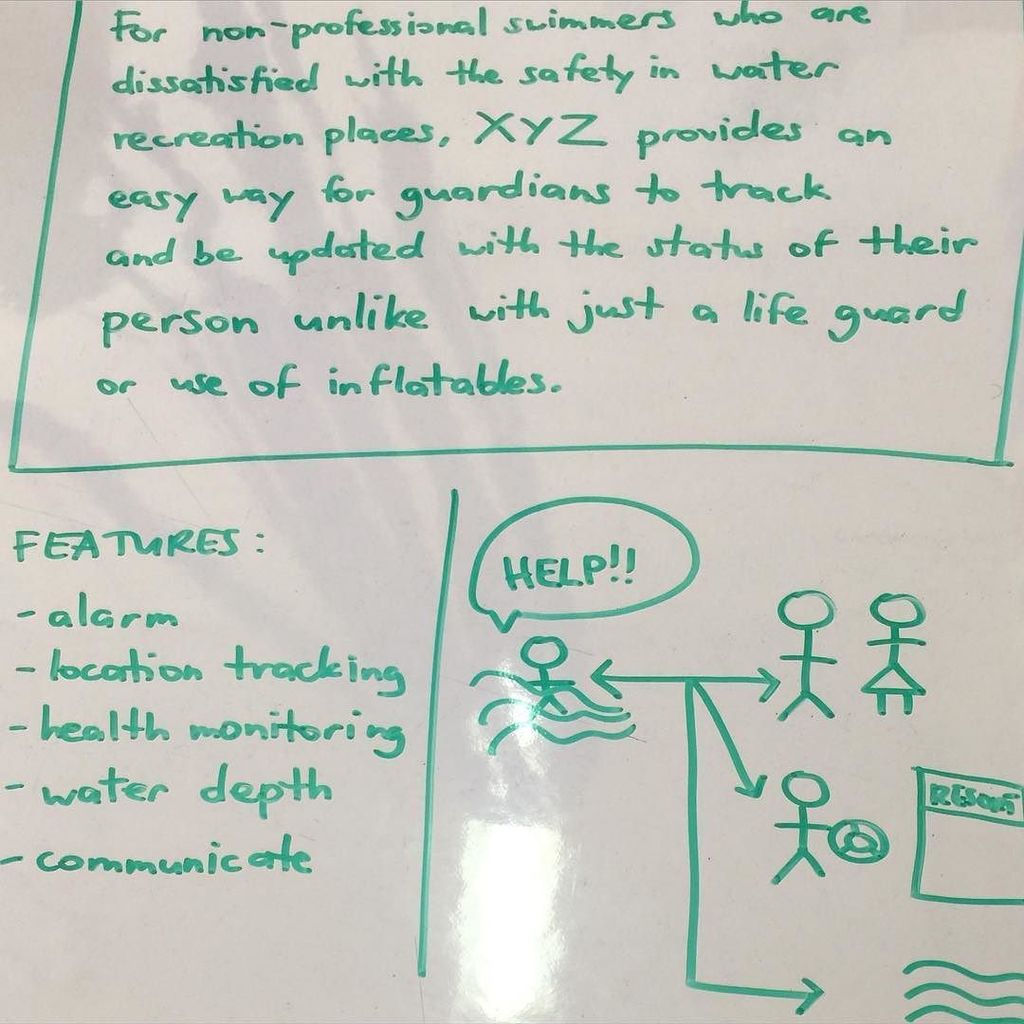 For non-professional swimmers who are
dissatisfied with the safety in water
recreation places, XYZ provides an
easy way for guardians to track
and be updated with the status of their
person unlike with just a life guard
or use of inflatables.
FEATURES:
- alarm
- location tracking
- health monitoring
- water depth
- communicate
HELP!!